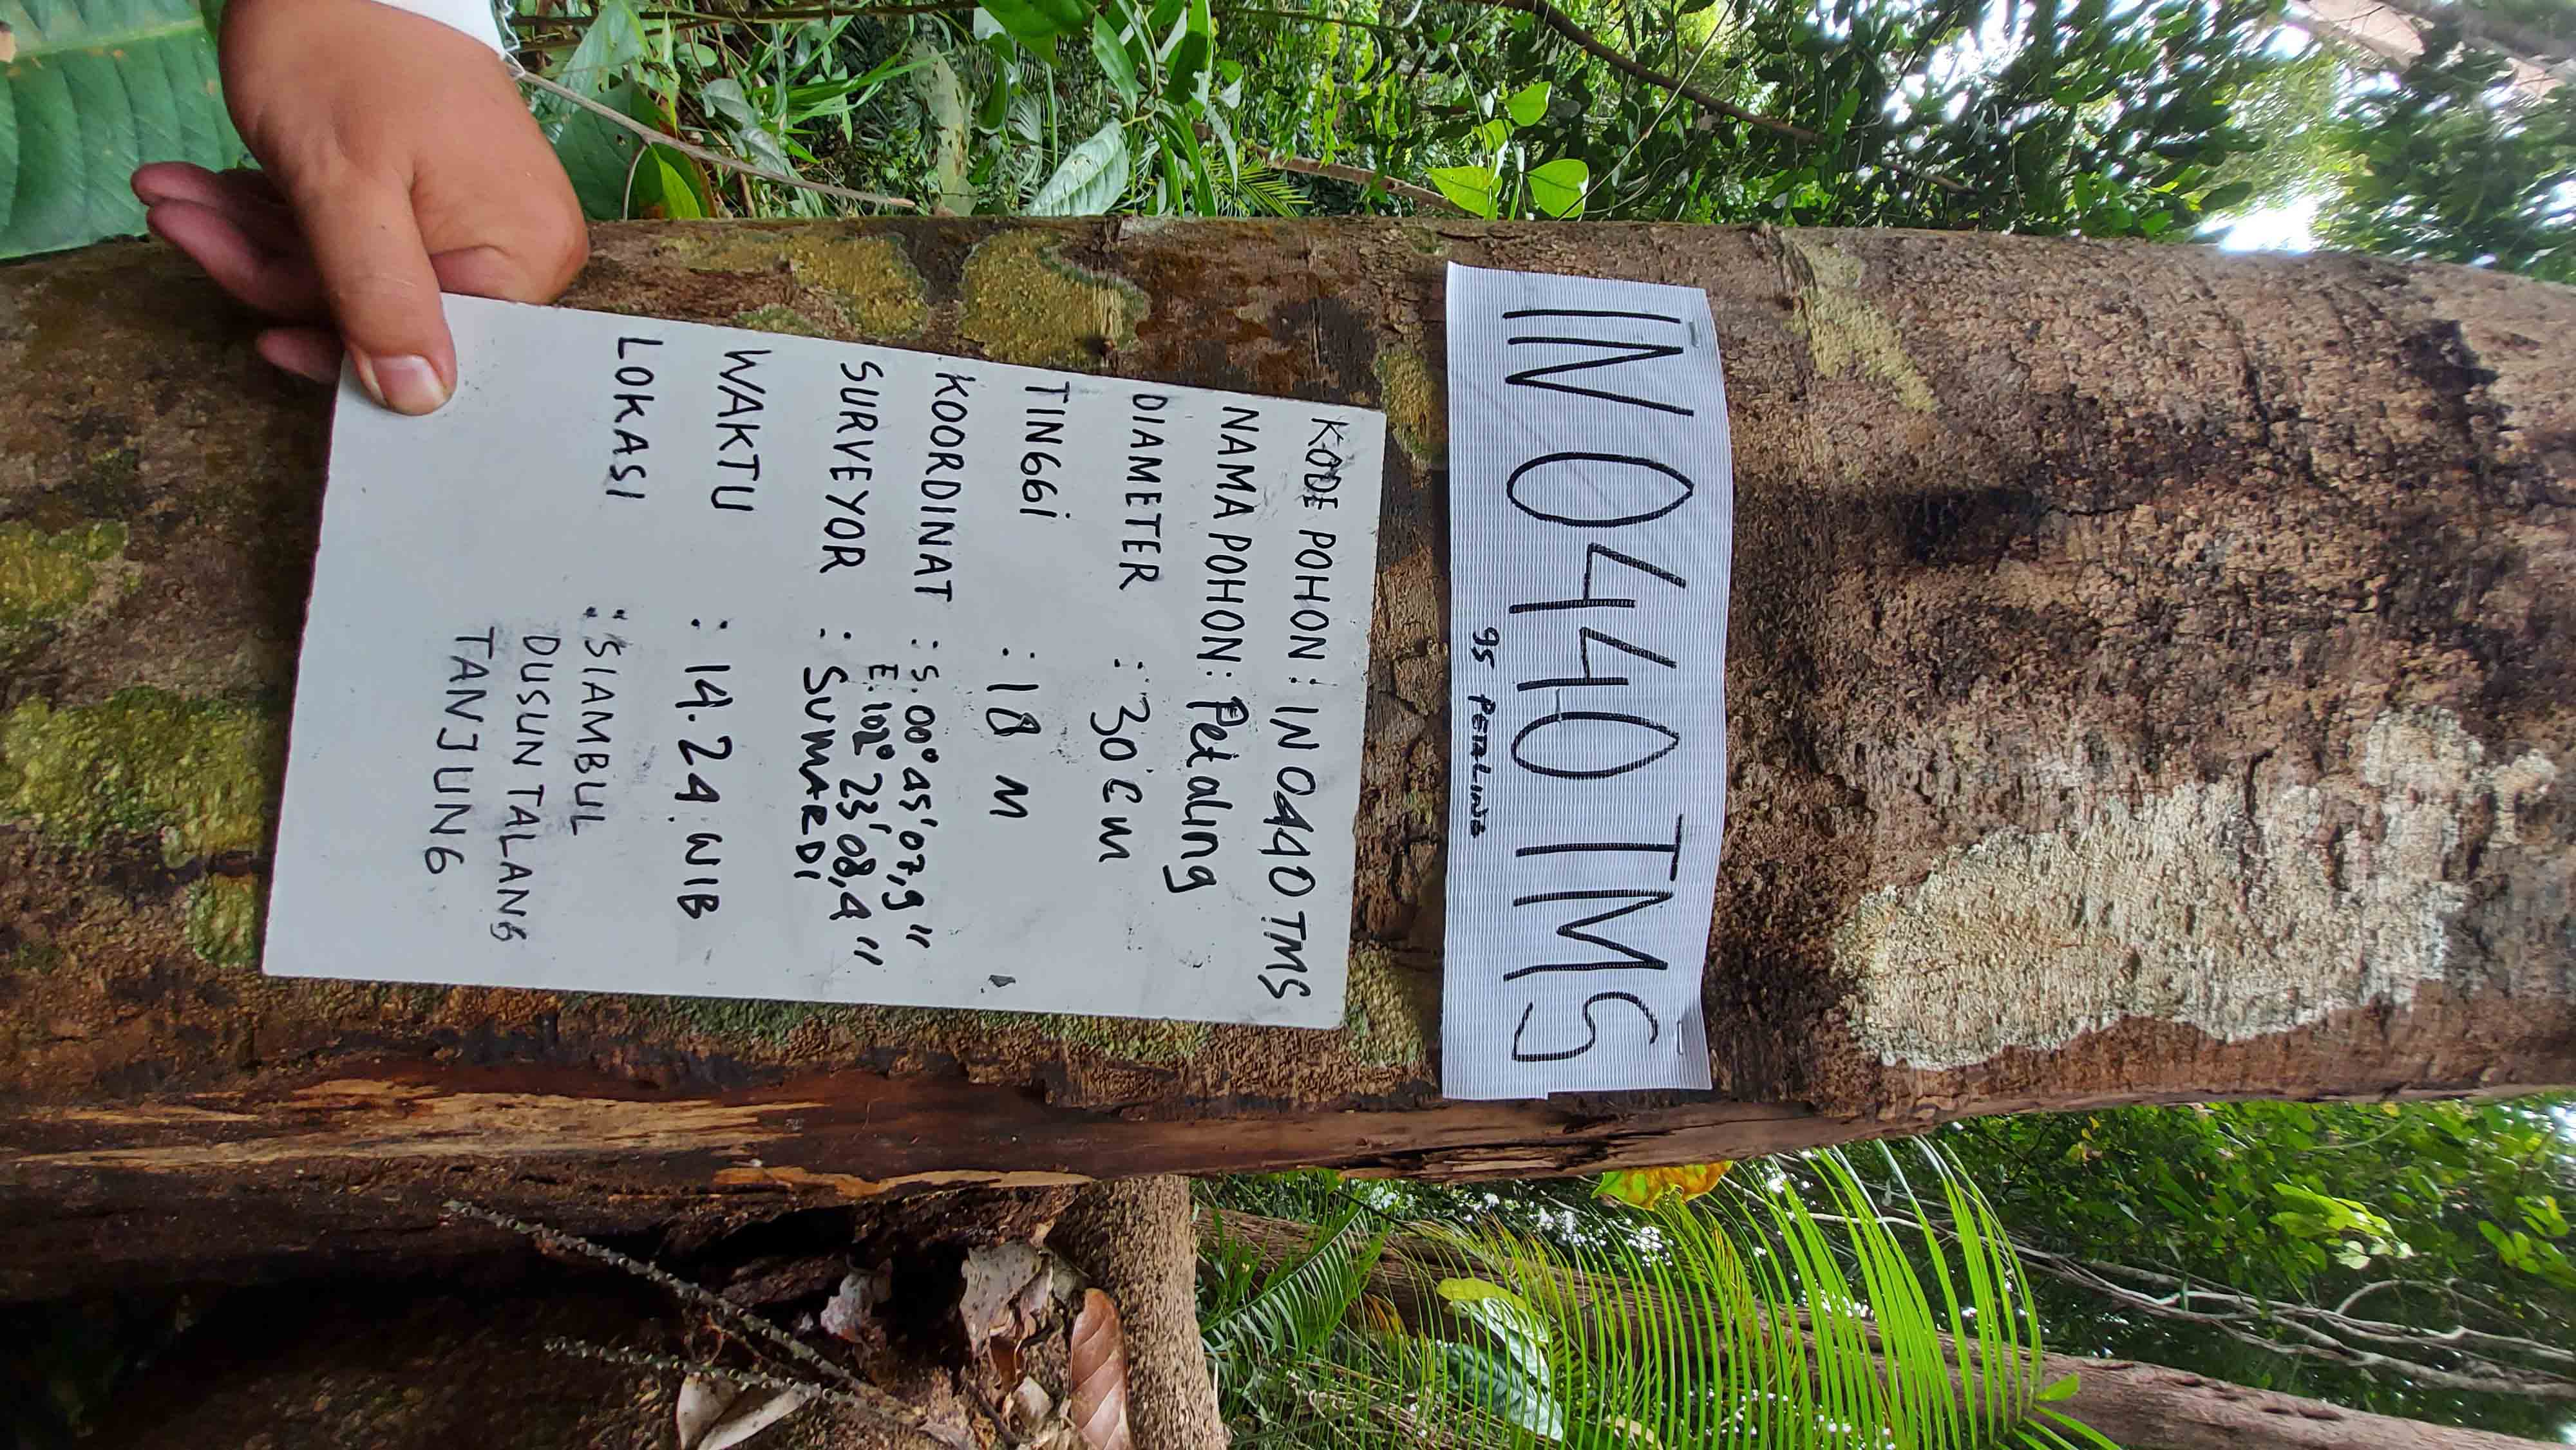 IN 0440 TMS
95 PETALING
KODE POHON : IN 0440 TMS
NAMA POHON : Petaling
DIAMETER : 30 CM
TINGGi : 18 M
KOORDINAT : S. 00° 45' 07,9"
E. 102° 23' 08,4"
SURVEYOR : SUMARDI
WAKTU : 14.24 WIB
LOKASI : SIAMBUL
DUSUN TALANG
TANJUNG